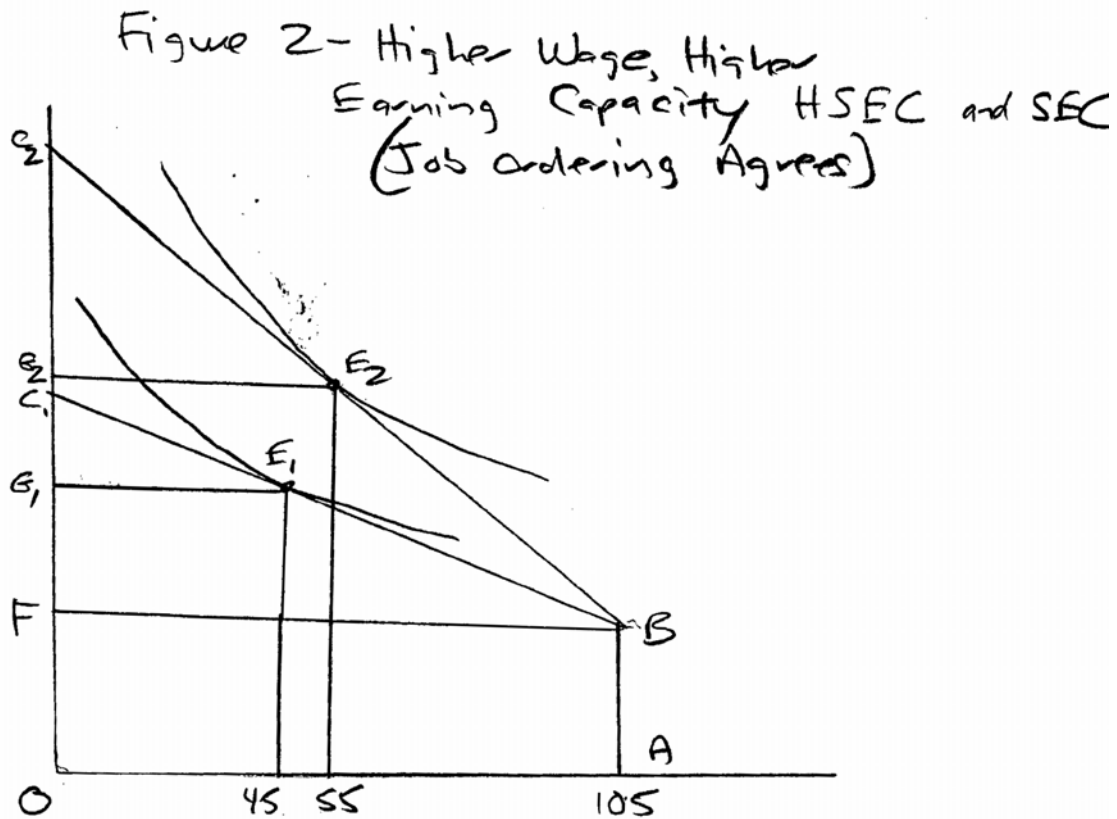 Figure 2 - Higher Wage, Higher
Earning Capacity HSEC and SEC
(Job Ordering Agrees)
C2
G2
E2
C1
E1
G1
F
B
A
0 45 55 105